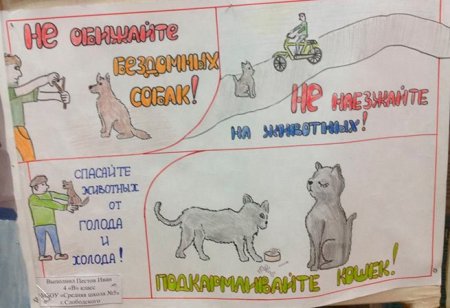 НЕ ОБИЖАЙТЕ
БЕЗДОМНЫХ
СОБАК!
НЕ НАЕЗЖАЙТЕ
НА ЖИВОТНЫХ!
СПАСАЙТЕ
ЖИВОТНЫХ
ОТ
ГОЛОДА
И
ХОЛОДА!
ПОДКАРМЛИВАЙТЕ КОШЕК!
Выполнил Пестов Иван
4 «В» класс
«Средняя школа №5»
г.Слободского